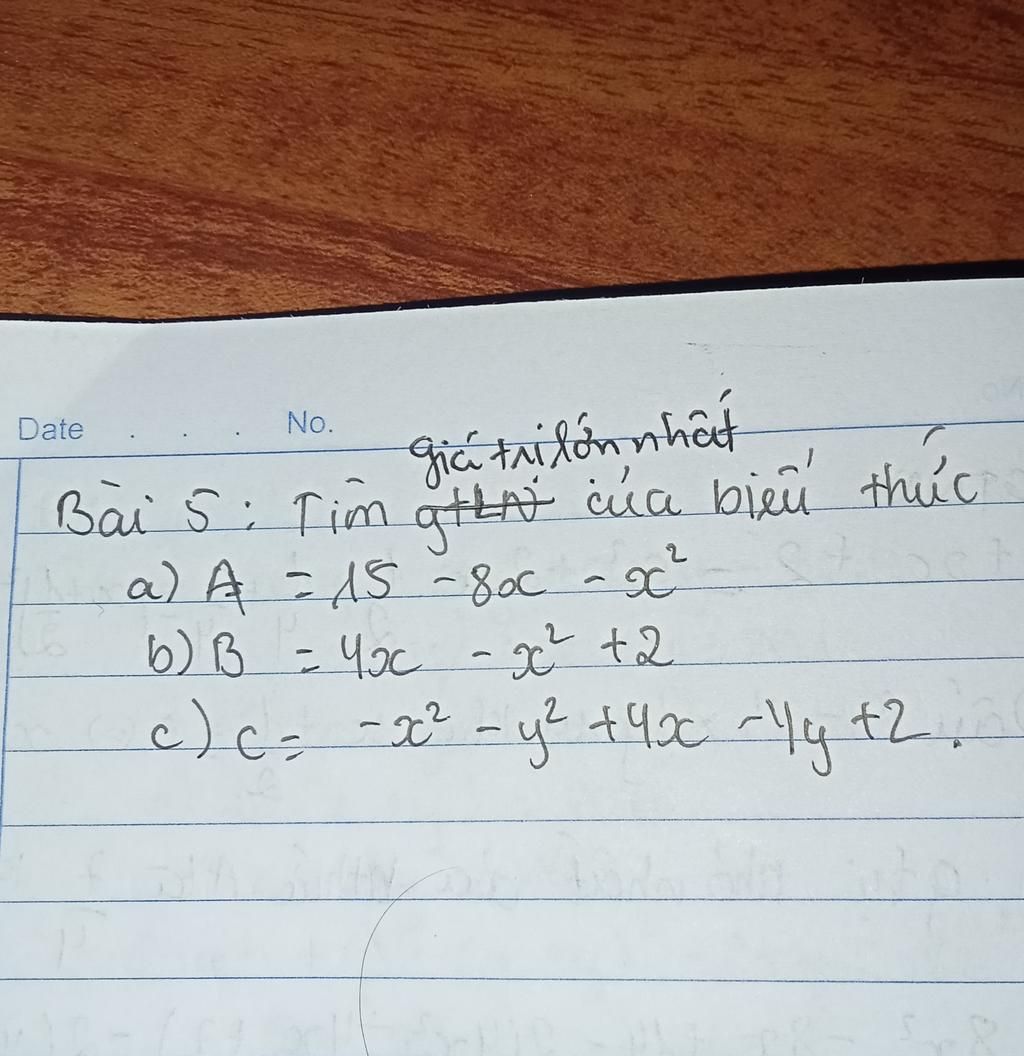 Date . . . No.
giá trị lớn nhất
Bài 5 : Tìm gtLN của biểu thức
a) A = 15 - 8x - x²
b) B = 4x - x² + 2
c) C = -x² - y² + 4x - 4y + 2.